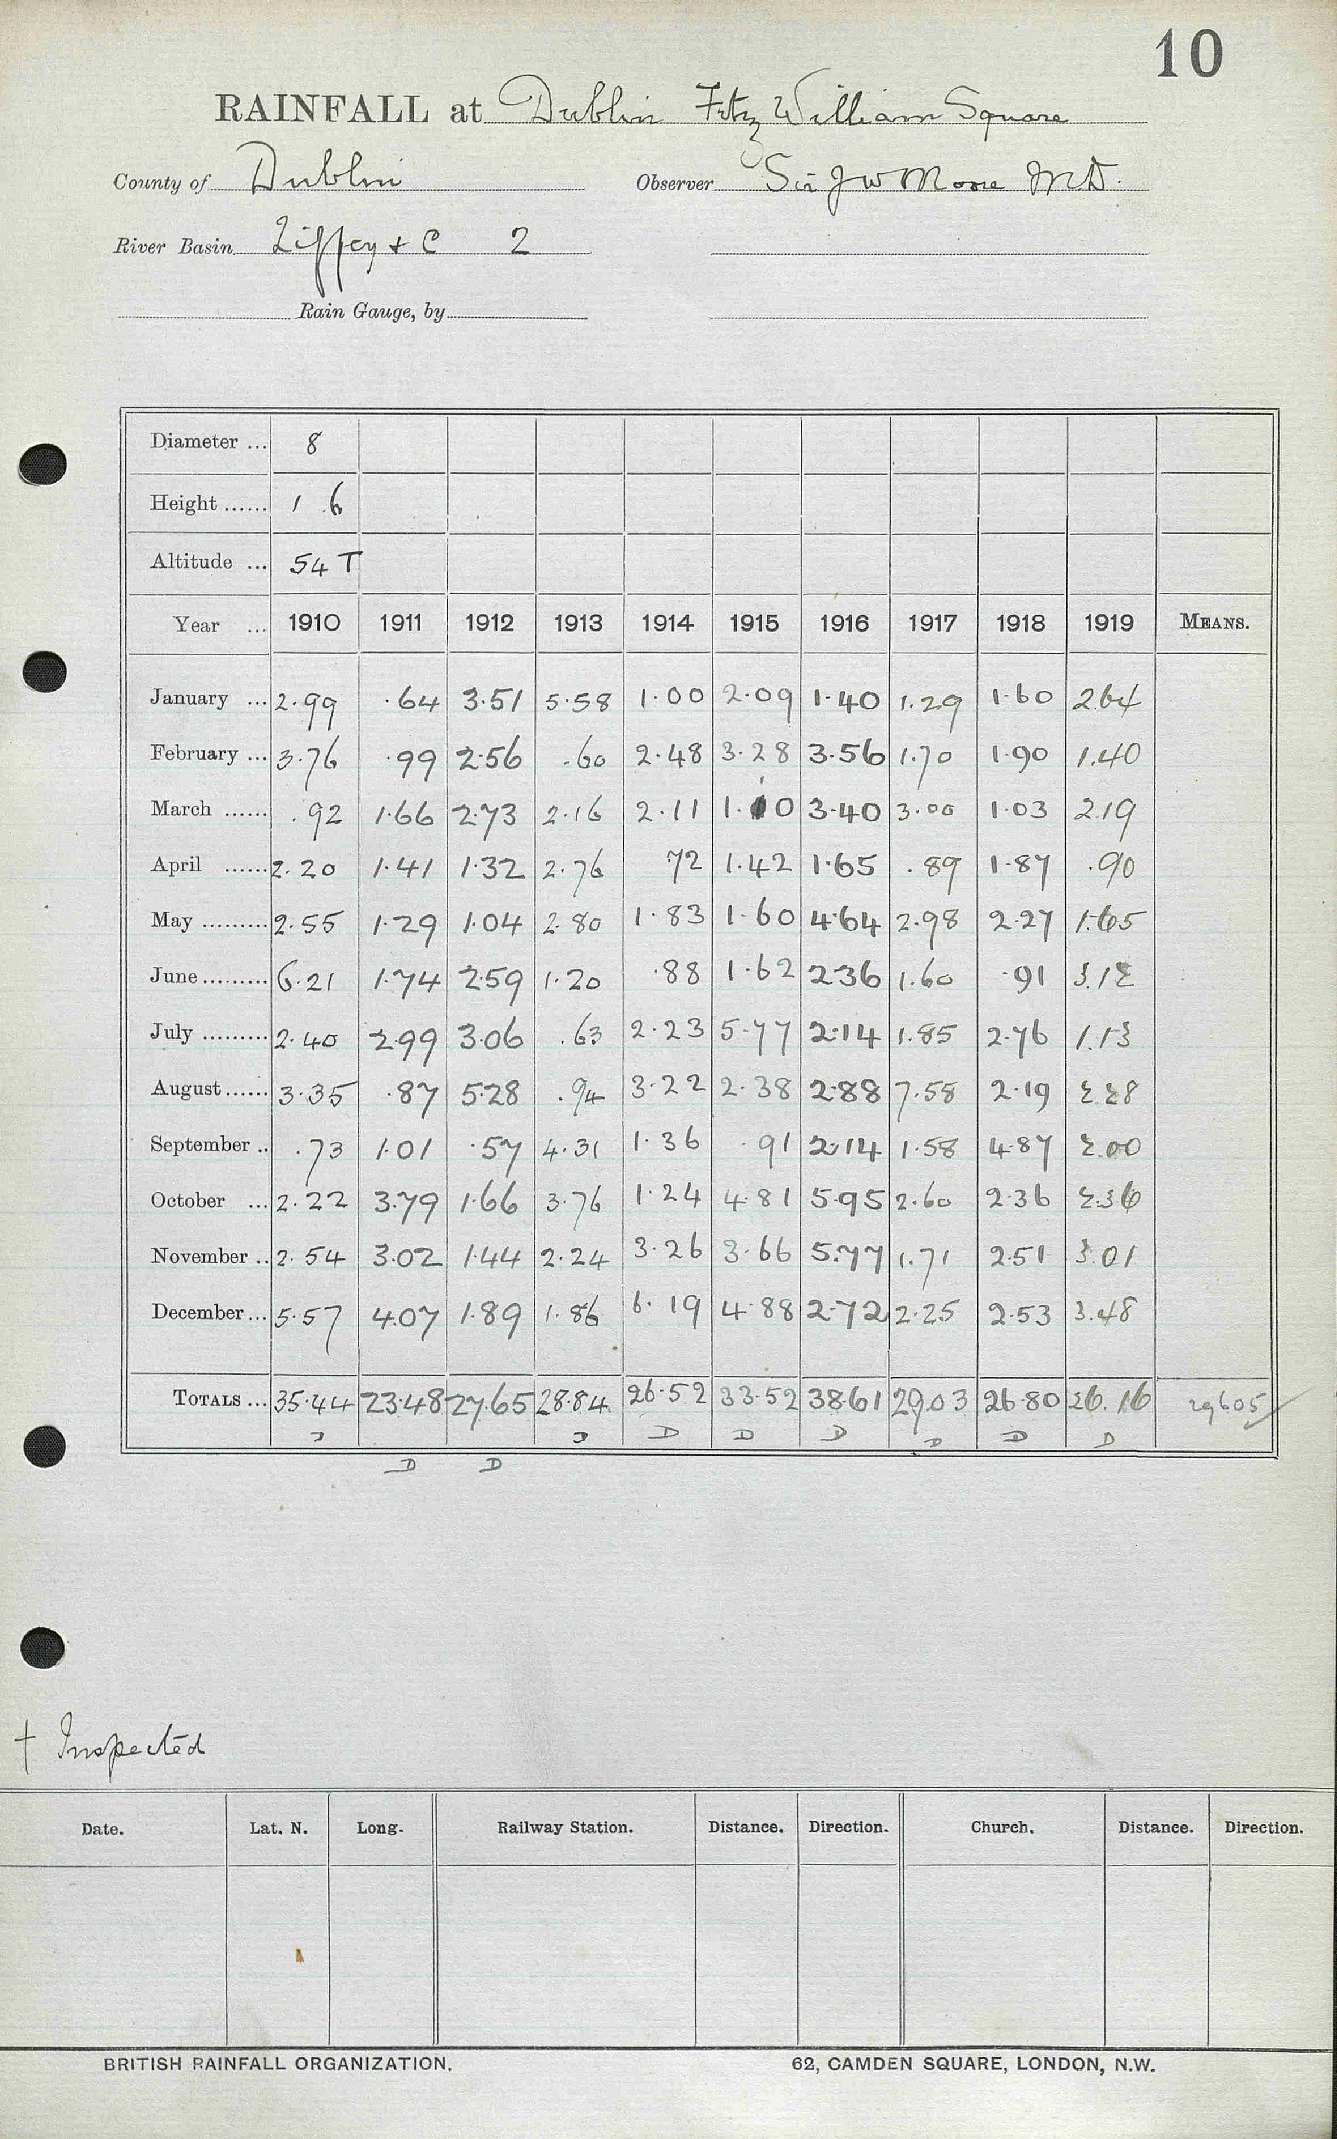 10
RAINFALL at Dublin Fitz William Square
County of Dublin Observer Sir J W Moore M.D.
River Basin Liffey & C 2
Rain Gauge, by
Diameter ... 8
Height ...... 1 .6
Altitude ... 54 T
Year ... 1910 1911 1912 1913 1914 1915 1916 1917 1918 1919 MEANS.
January ... 2.99 .64 3.51 5.58 1.00 2.09 1.40 1.29 1.60 2.64
February ... 3.76 .99 2.56 .60 2.48 3.28 3.56 1.70 1.90 1.40
March ...... .92 1.66 2.73 2.16 2.11 1.10 3.40 3.00 1.03 2.19
April ...... 2.20 1.41 1.32 2.76 72 1.42 1.65 .89 1.87 .90
May ......... 2.55 1.29 1.04 2.80 1.83 1.60 4.64 2.98 2.27 1.65
June ......... 6.21 1.74 2.59 1.20 .88 1.62 2.36 1.60 .91 3.12
July ......... 2.40 2.99 3.06 .63 2.23 5.77 2.14 1.85 2.76 1.13
August ...... 3.35 .87 5.28 .94 3.22 2.38 2.88 7.58 2.19 2.28
September .. .73 1.01 .57 4.31 1.36 .91 2.14 1.58 4.87 2.00
October ... 2.22 3.79 1.66 3.76 1.24 4.81 5.95 2.60 2.36 2.36
November .. 2.54 3.02 1.44 2.24 3.26 3.66 5.77 1.71 2.51 3.01
December ... 5.57 4.07 1.89 1.86 6.19 4.88 2.72 2.25 2.53 3.48
TOTALS ... 35.44 23.48 27.65 28.84 26.52 33.52 38.61 29.03 26.80 26.16 29605
D D D D D D D D
D D
† Inspected
Date. Lat. N. Long. Railway Station. Distance. Direction. Church. Distance. Direction.
BRITISH RAINFALL ORGANIZATION. 62, CAMDEN SQUARE, LONDON, N.W.